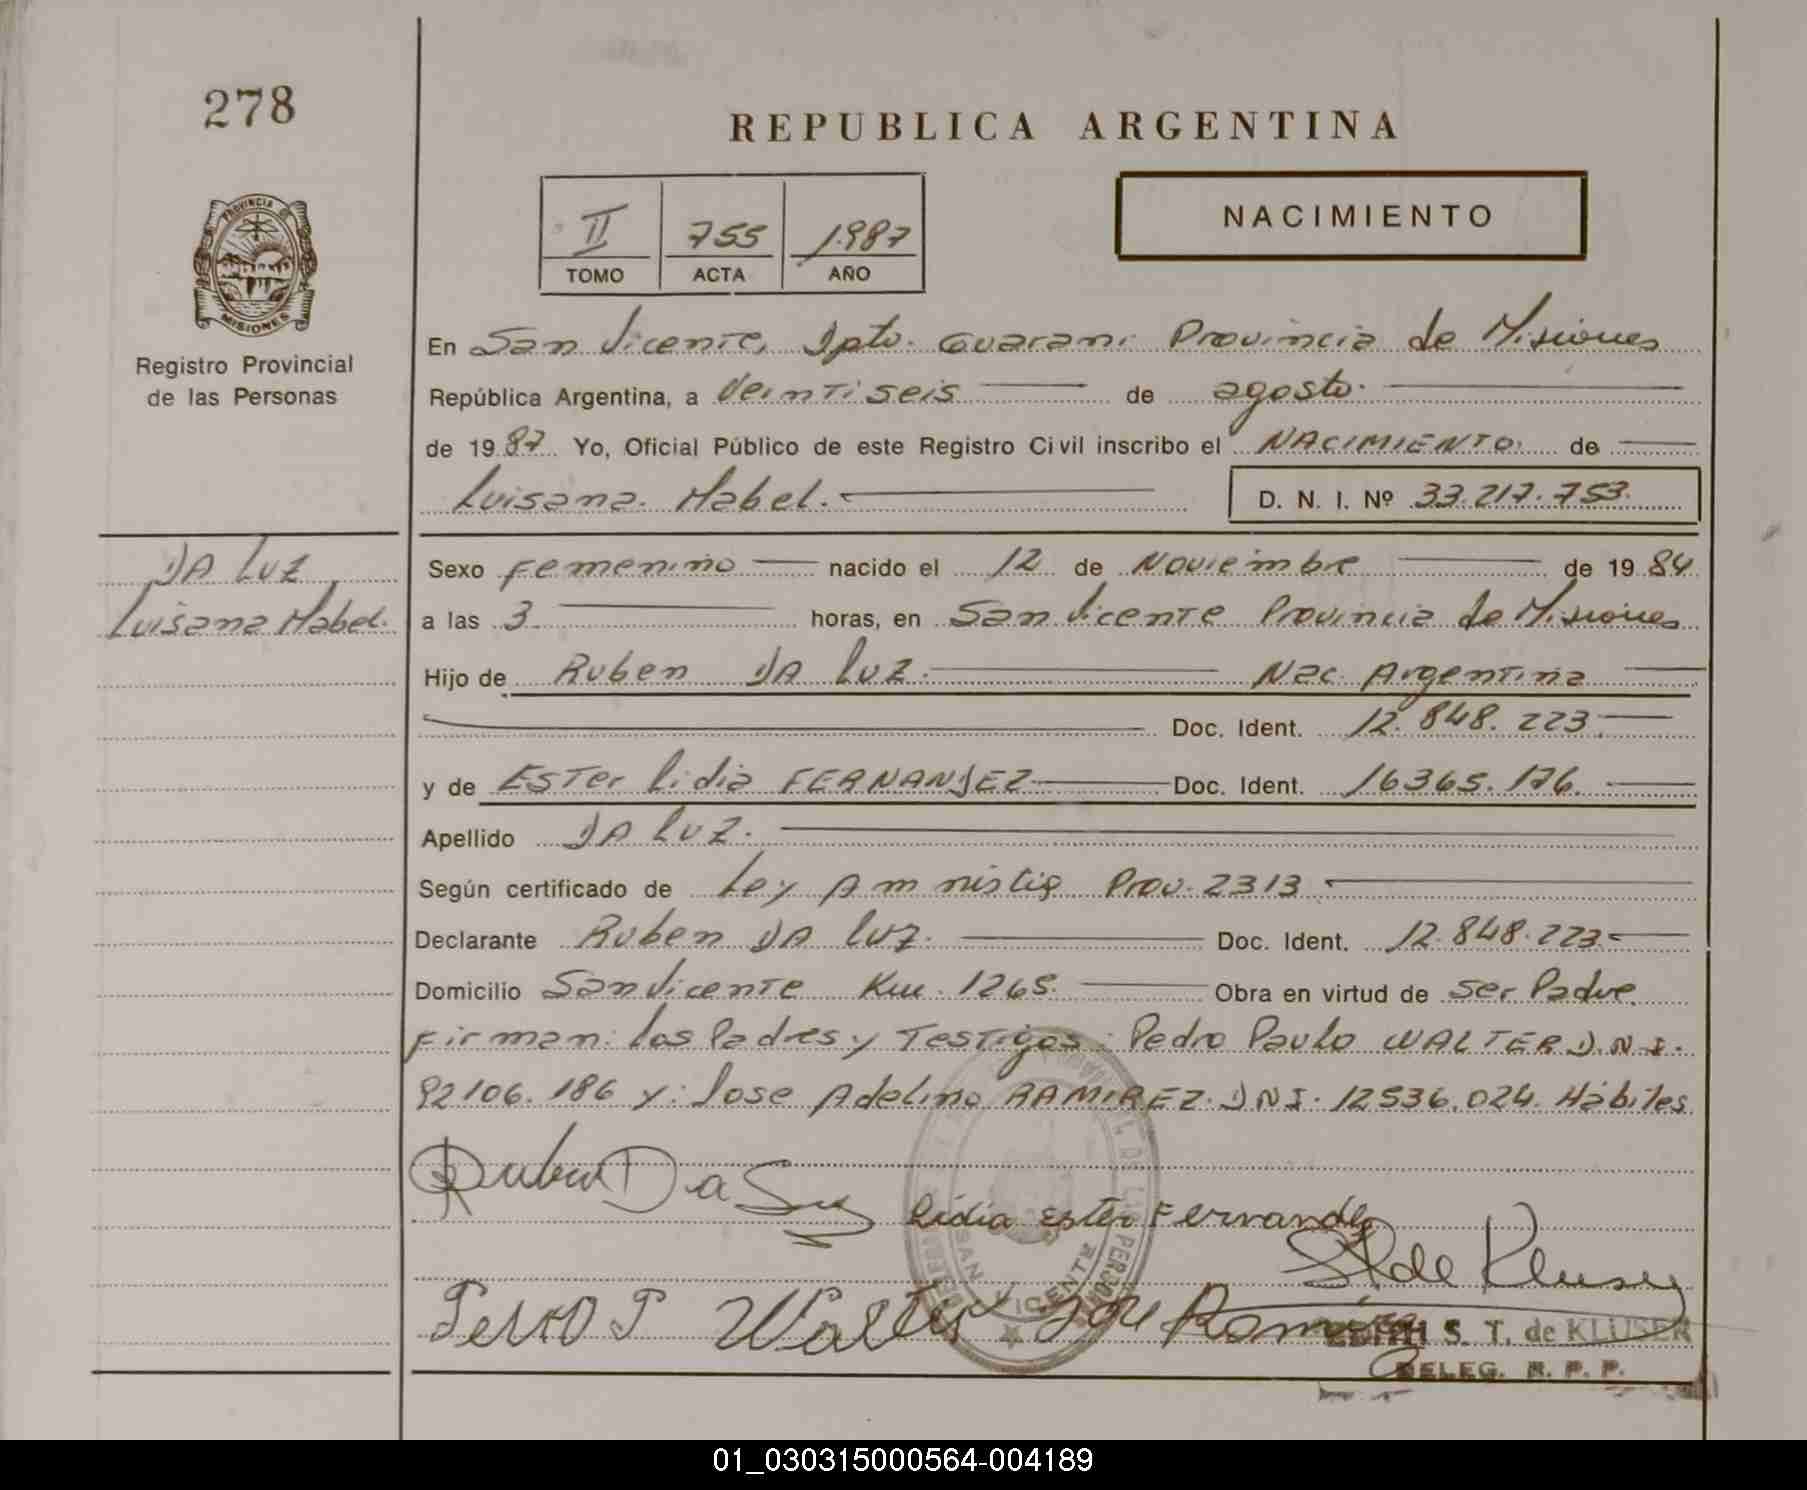 278
REPUBLICA ARGENTINA
NACIMIENTO
II 755 1987
TOMO ACTA AÑO
PROVINCIA DE
MISIONES
Registro Provincial
de las Personas
En San Vicente, Dpto. Guarani Provincia de Misiones
República Argentina, a Veintiseis de agosto.
de 1987 Yo, Oficial Público de este Registro Civil inscribo el NACIMIENTO de
Luisana Mabel. D. N. I. Nº 33.217.753.
DA LUZ
Luisana Mabel.
Sexo femenino nacido el 12 de Noviembre de 1984
a las 3 horas, en San Vicente Provincia de Misiones
Hijo de Ruben DA LUZ. Nac. Argentina
Doc. Ident. 12.848.223.
y de ESTer Lidia FERNANDEZ Doc. Ident. 16365.176.
Apellido DA LUZ.
Según certificado de Ley Amnistia Prov. 2313
Declarante Ruben DA LUZ. Doc. Ident. 12.848.223
Domicilio San Vicente Km. 1265. Obra en virtud de ser Padre.
Firman: los Padres y Testigos: Pedro Paulo WALTER D.N.I.
92106.186 y: Jose Adelino RAMIREZ. DNI. 12536.024. Hábiles
Ruben Da Luz
Lidia Ester Fernandez
SAN VICENTE
S T de Kluser
Pedro P Walter Jose Ramirez
EDITH S. T. de KLUSER
DELEG. R. P. P.
01_030315000564-004189